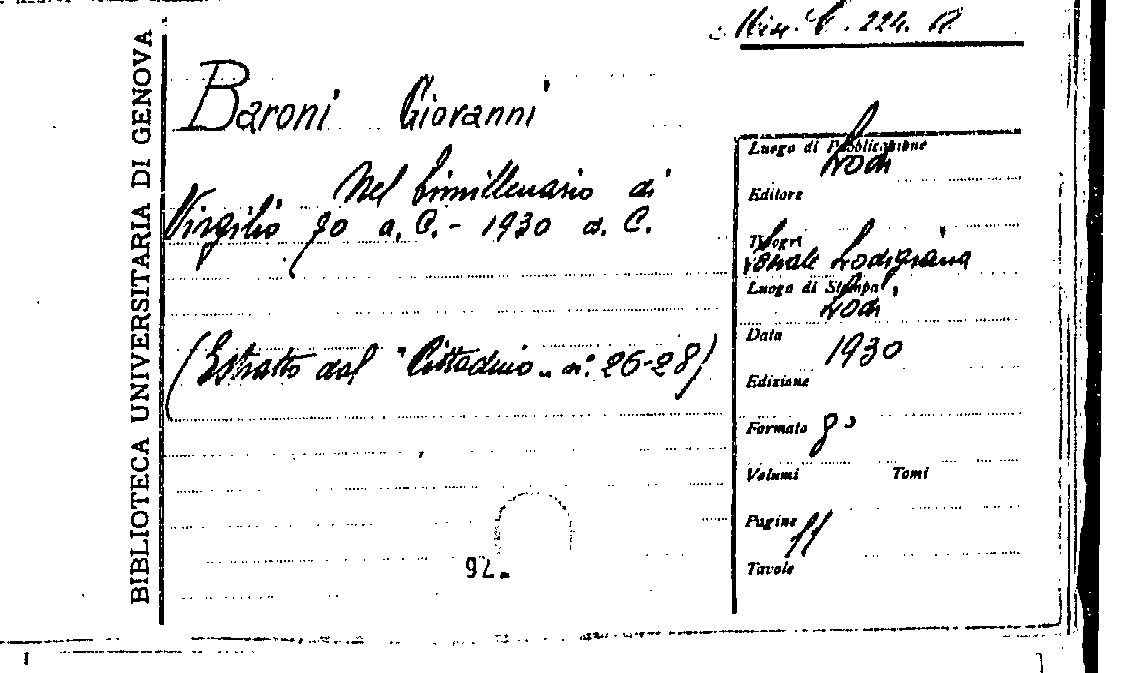 Misc. C. 224. 17
BIBLIOTECA UNIVERSITARIA DI GENOVA
Baroni Giovanni
Nel bimillenario di
Virgilio 70 a. C. - 1930 d. C.
(Estratto dal "Cittadino" n. 26-28)
92.
Luogo di Pubblicazione
Lodi
Editore
Tipogr
Lodigiana
Luogo di Stampa
Lodi
Data
1930
Edizione
Formato 8°
Volumi Tomi
Pagine
11
Tavole